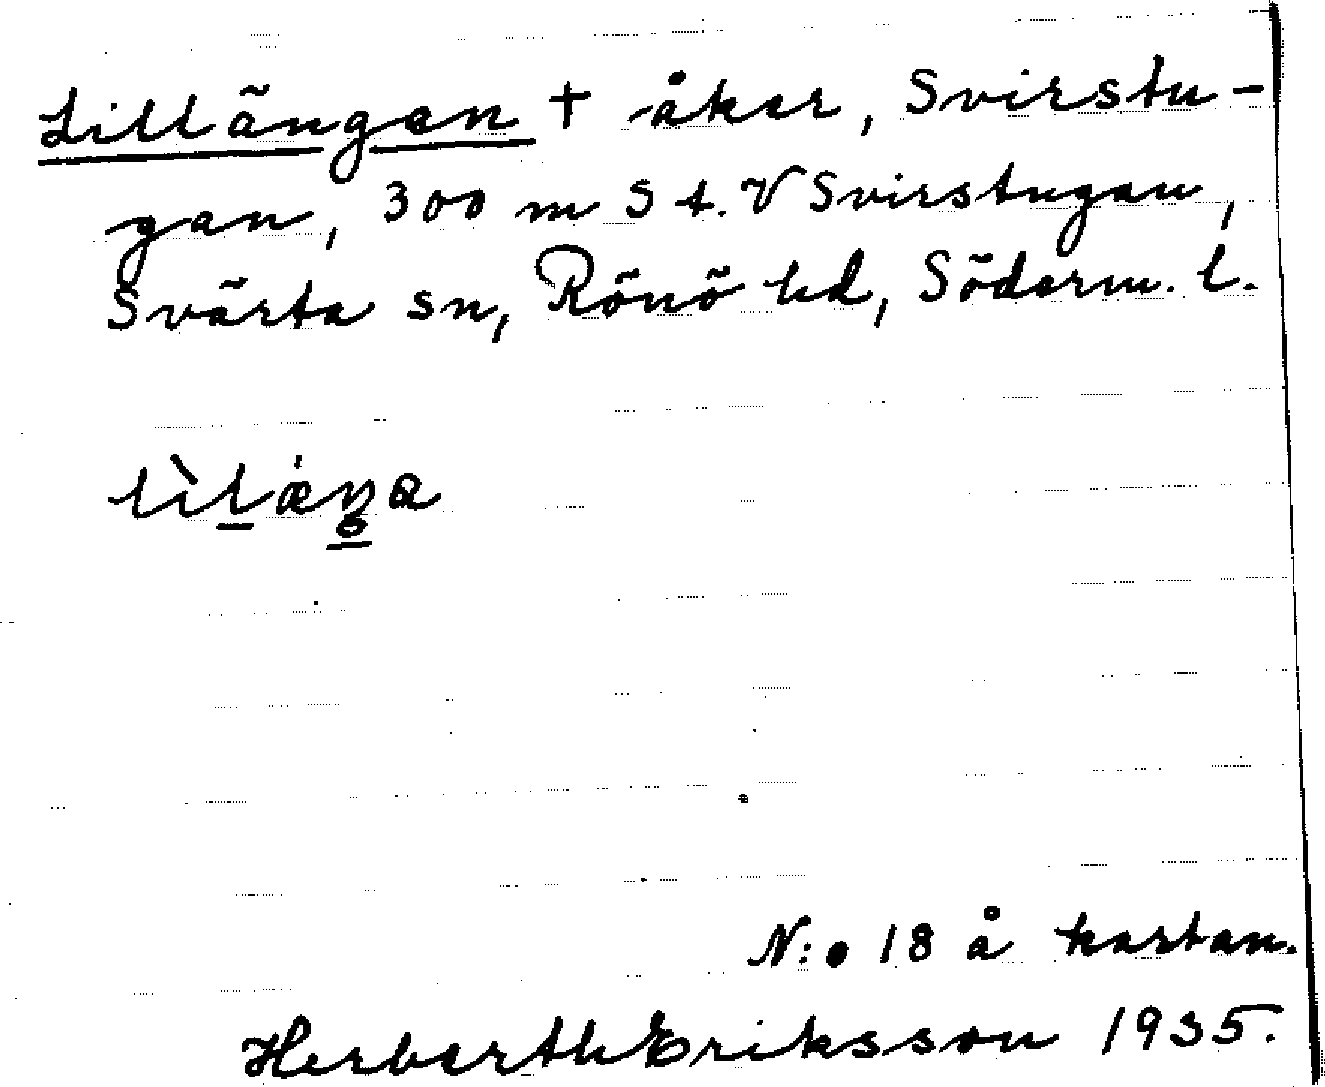 Lillängen + åker, Svirstu-
gan, 300 m S t. V Svirstugan,
Svärta sn, Rönö hd, Söderm. l.
N:o 18 å kartan.
Herberth Eriksson 1935.